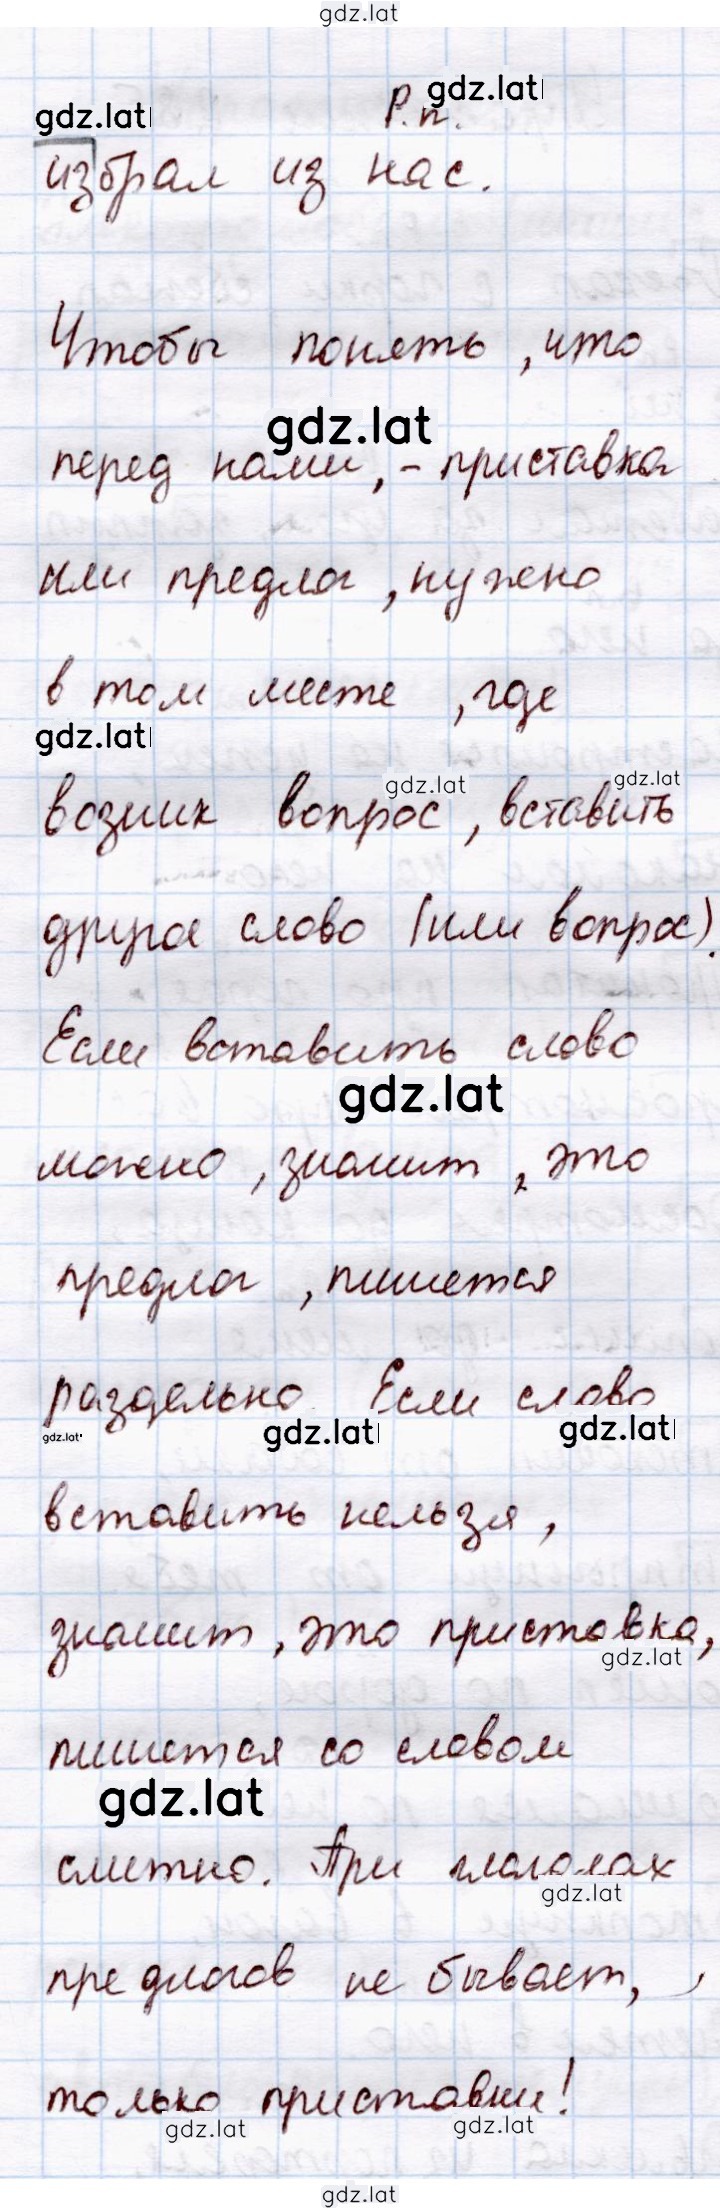 gdz.lat
gdz.lat Р.п. gdz.lat
избрал из нас.
Чтобы понять, что
gdz.lat
перед нами, - приставка
или предлог, нужно
в том месте, где
gdz.lat
gdz.lat gdz.lat
возник вопрос, вставить
другое слово (или вопрос).
Если вставить слово
gdz.lat
можно, значит, это
предлог, пишется
раздельно. Если слово
gdz.lat gdz.lat gdz.lat
вставить нельзя,
значит, это приставка,
gdz.lat
пишется со словом
gdz.lat
слитно. При глаголах
gdz.lat
предлогов не бывает,
только приставки!
gdz.lat gdz.lat
gdz.lat